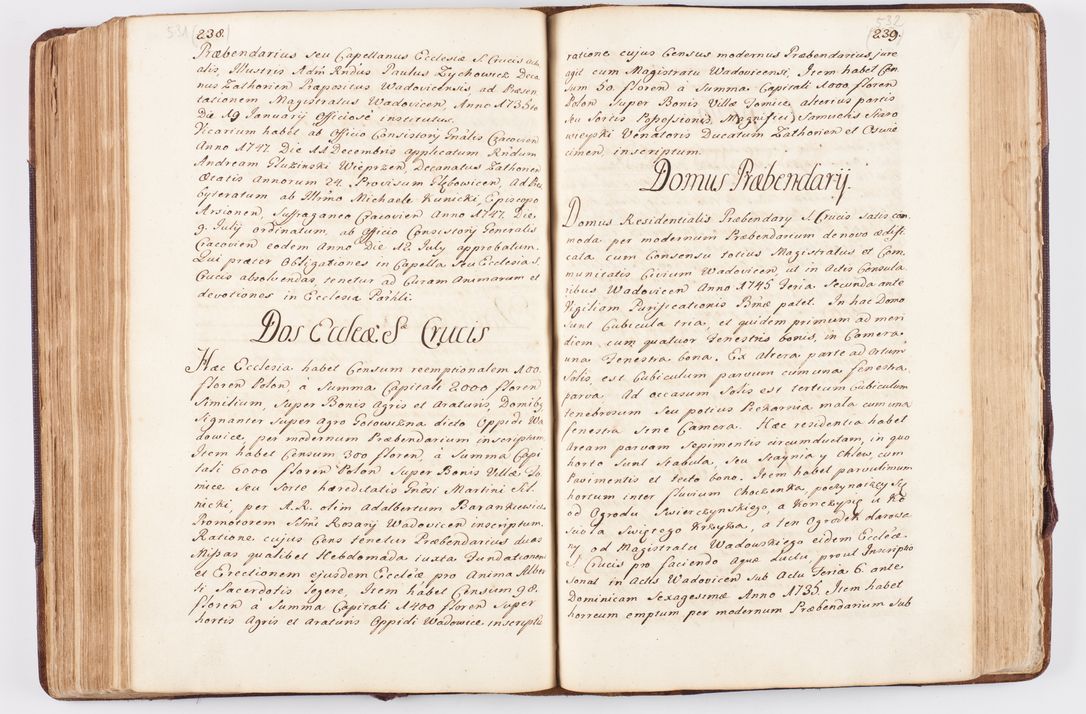 531
238.
Præbendarius seu Capellanus Ecclesiæ S. Crucis actu
alis, Illustris Adm Rndus Paulus Zychowicz Deca
nus Zathorien Præpositus Wadovicensis, ad Præsen
tationem Magistratus Wadovicen, Anno 1735to
Die 19 January Officiose institutus.
Vicarium habet ab Officio Consistory Gnâlis Cracovien
Anno 1747. Die 11 Decembris applicatum Rndum
Andream Gluzinski Wieprzen, Decanatus Zathorien
Ætatis Annorum 24. Provisum Głębowicen, Ad Pres
byteratum ab Illmo Michaele Kunicki, Episcopo
Arsionen, Suffraganeo Cracovien Anno 1747. Die
9. July ordinatum, ab Officio Consistory Generalis
Cracovien eodem Anno Die 12. July approbatum.
Qui præter Obligationes in Capella seu Ecclesia S.
Crucis absolvendas, tenetur ad Curam Animarum et
devotiones in Ecclesia Parhli.
Dos Eccleæ Sæ Crucis
Hæc Ecclesia habet Censum reemptionalem 100.
floren Polon, à Summa Capitali 2000 floren
Similium, super Bonis Agris et Araturis, Domibg
Signanter super Agro Gotowizna dicto Oppidi Wa
dowice, per modernum Præbendarium inscriptum
Item habet Censum 300 floren, à Summa Capi
tali 6000 floren Polon super Bonis Villæ To
mice seu Sorte hæreditatis Gnosi Martini Sil
nicki, per A.R. olim Adalbertum Barankiewicz
Promotorem Ssmi Rosary Wadovicen inscriptum.
Ratione cujus Cens tenetur Præbendarius duas
Missas qualibet Hebdomada iuxta Fundationem
et Erectionem ejusdem Eccleæ pro Anima Alber
ti, Sacerdotis legere, Item habet Censum 98.
floren à Summa Capitali 1400 floren super
hortis Agris et Araturis Oppidi Wadowice inscriptu
532
239.
ratione cujus Census modernus Præbendarius jure
agit cum Magistratu Wadovicensi, Item habet Cen
sum 50. floren à Summa Capitali 1000 floren
Polon super Bonis Villæ Tomice, alterius partis
seu Sortis Possessionis, Magnifici Samuelis Staro
wieyski Venatoris Ducatuum Zathorien et Oswie
cimen inscriptum.
Domus Præbendarij.
Domus Residentialis Præbendary S. Crucis satis com
moda per modernum Præbendarium denovo ædifi
cata cum Consensu totius Magistratus et Com
munitatis Civium Wadovicen, ut in Actis Consula
ribus Wadovicen Anno 1745 Feria Secunda ante
Vigiliam Purificationis Bmæ patet. In hac Domo
sunt Cubicula tria, et quidem primum ad meri
diem, cum quatuor Fenestris bonis, in Camera
una Fenestra bona. Ex altera parte ad ortum
Solis, est Cubiculum parvum cum una fenestra
parva, Ad occasum Solis est tertium Cubiculum
tenebrosum seu potius Piekarnia mala cum una
fenestra sine Camera. Hæc residentia habet
Aream parvam Sepimentis circumductam, in quo
horto sunt Stabula, seu Staynia y Chlew, cum
Pavimentis et tecto bono. Item habet parvulinum
hortum inter fluvium Choczenka, poczynaiący się
od Ogrodu Swierczynskiego, a konczysię u Ko
scioła Swiętego Krzyża, a ten Ogrodek darowa
ny od Magistratu Wadowskiego eidem Eccleæ.
S. Crucis pro faciendo Aquæ luctu, prout Inscriptio
sonat in Actis Wadovicen sub Actu Feria 6. ante
Dominicam Sexagesimæ Anno 1735. Item habet
horreum emptum per modernum Præbendarium sub